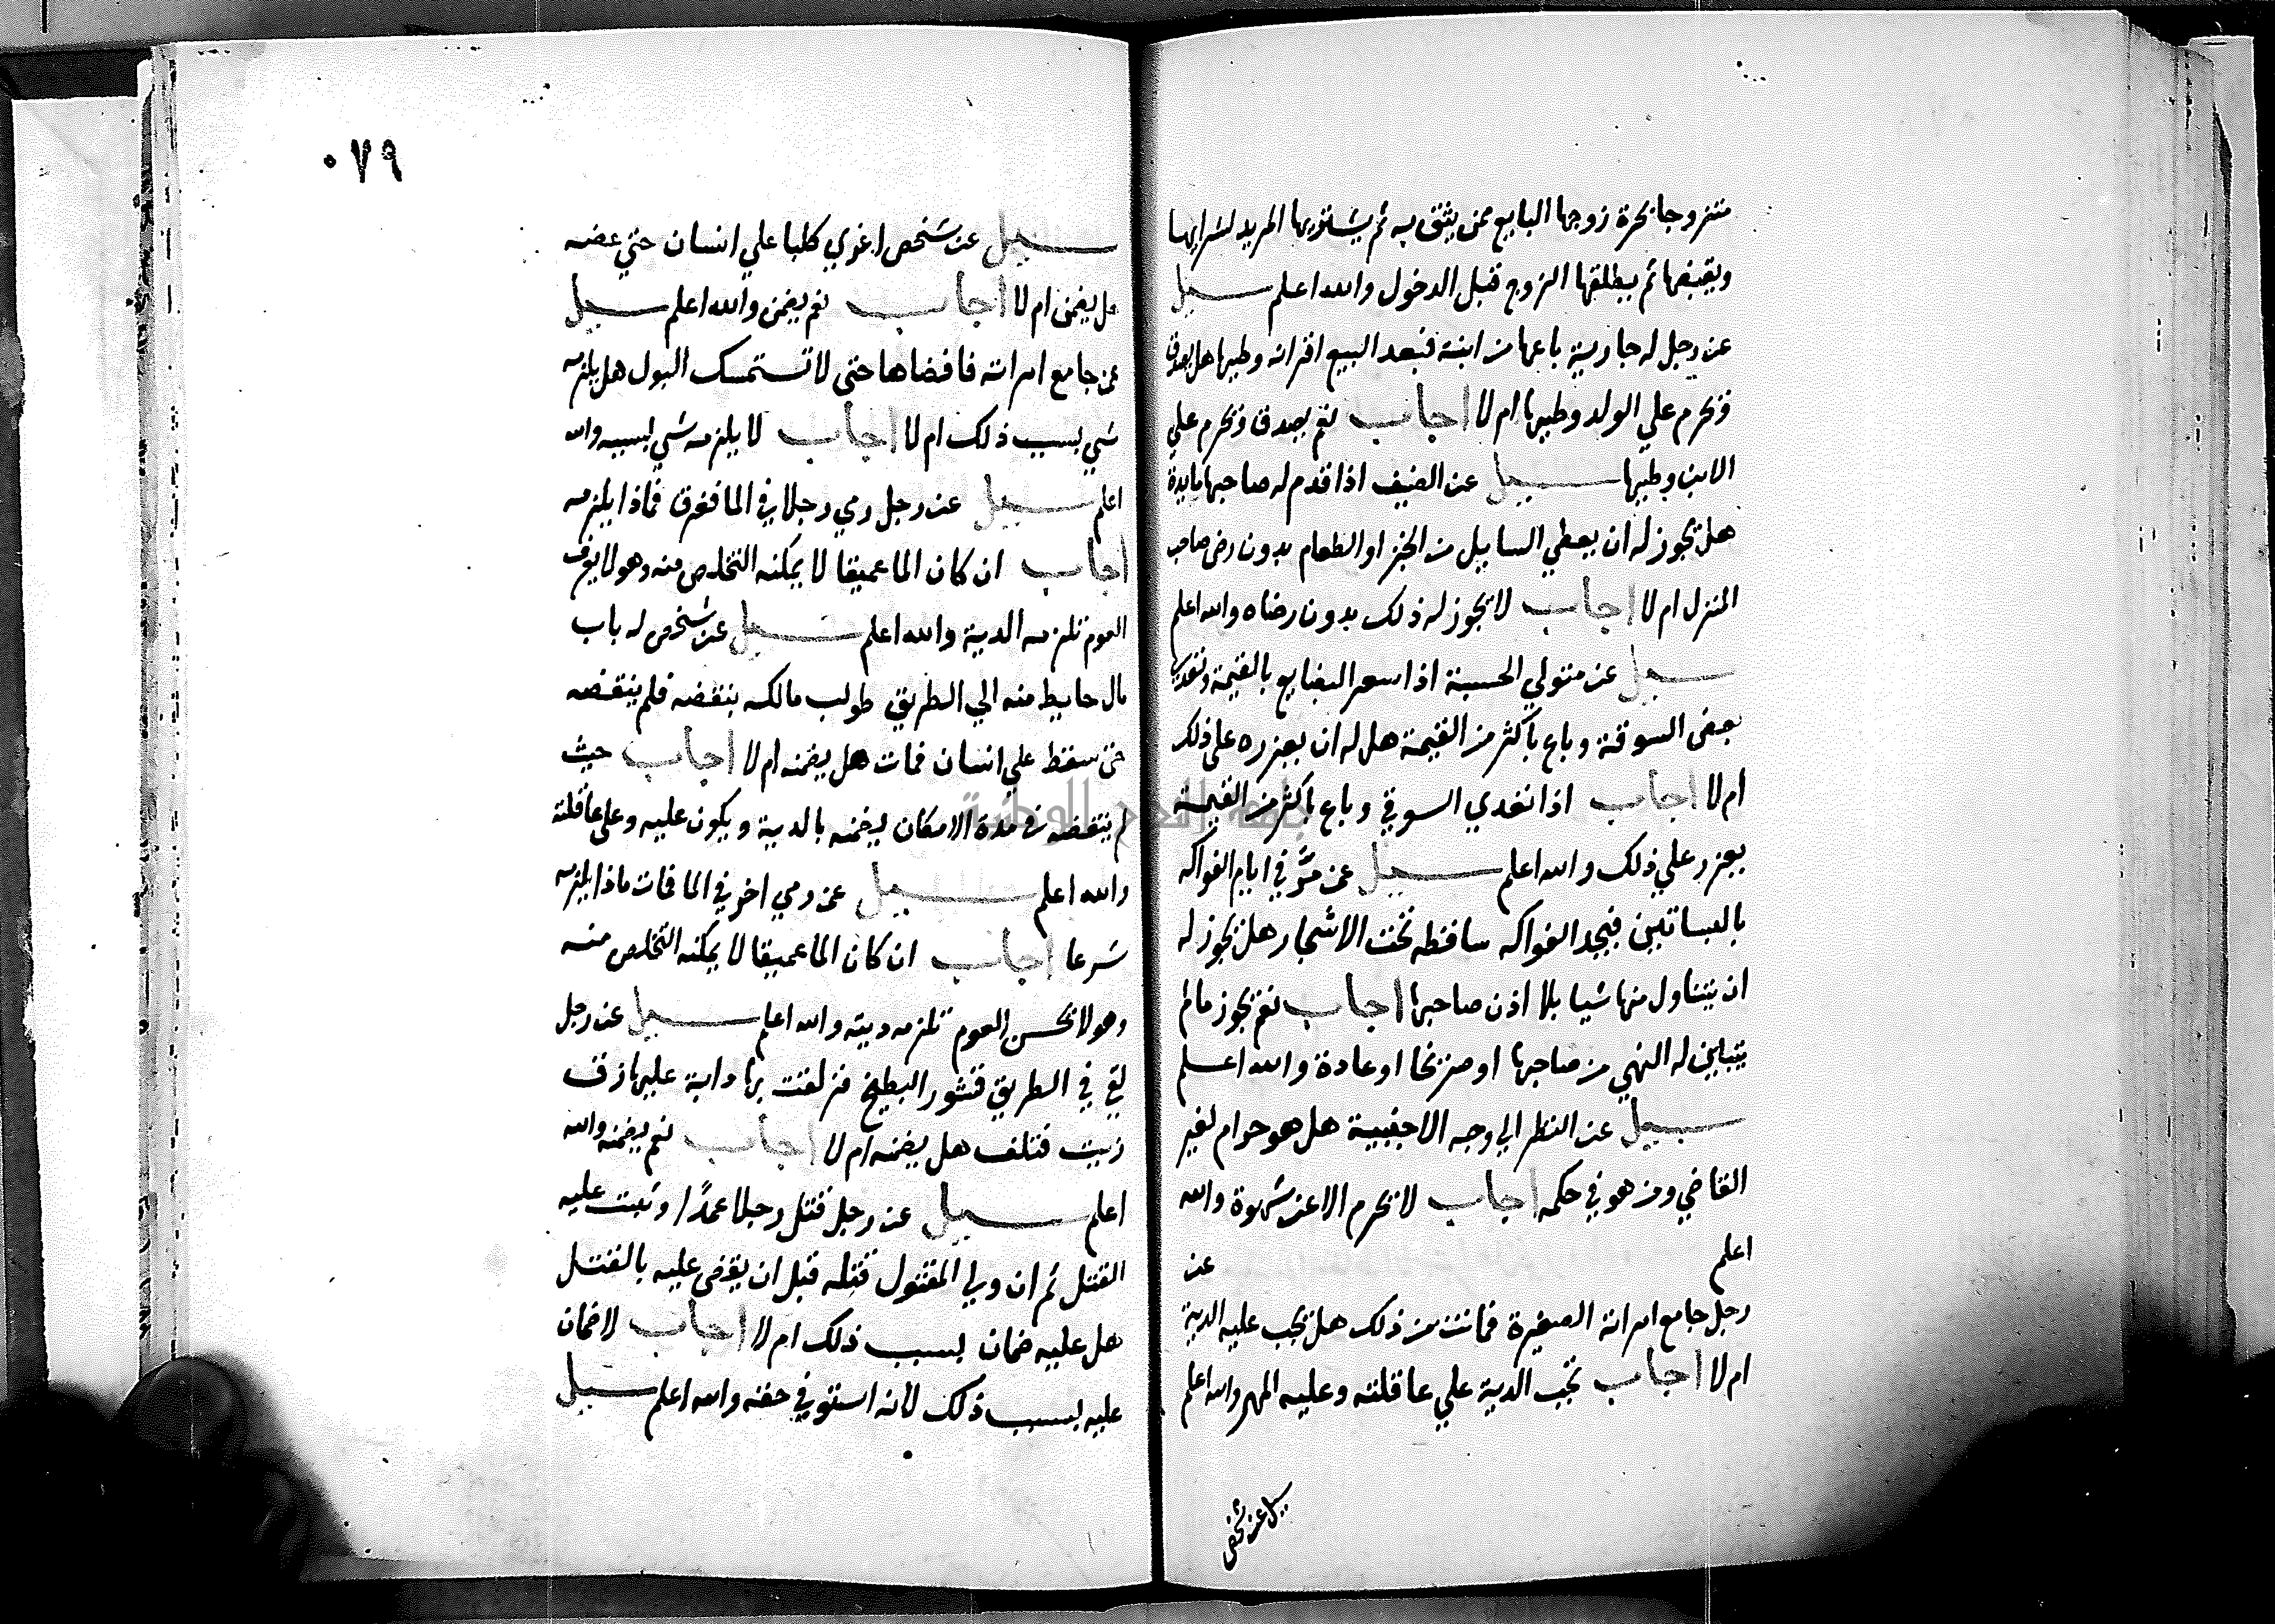 متزوجا بحرة زوجها البايع ممن يثق به ثم يشتريها المريد لشرايها
ويقبضها ثم يطلقها الزوج قبل الدخول والله اعلم سيل
عن رجل له جارية باعها من ابنه فبعد البيع اقر انه وطيها هل يصدق
وتحرم علي الولد وطيها ام لا اجاب نعم يصدق وتحرم علي
الابن وطيها سيل عن الضيف اذا قدم له صاحبها مايدة
هل يجوز له ان يعطي السايل من الخبز او الطعام بدون رضى صاحب
المنزل ام لا اجاب لا يجوز له ذلك بدون رضاه والله اعلم
سيل عن متولي الحسبة اذا سعر البضايع بالقيمة وتعدي
بعض السوقة وباع باكثر من القيمة هل له ان يعزره على ذلك
ام لا اجاب اذا تعدي السوقي وباع باكثر من القيمة
يعزر علي ذلك والله اعلم سيل عن مر في ايام الفواكه
بالبساتين فيجد الفواكه ساقطه تحت الاشجار هل يجوز له
ان يتناول منها شيا بلا اذن صاحبها اجاب نعم يجوز مالم
يتبين له النهي من صاحبها او صريحا او عادة والله اعلم
سيل عن النظر الي وجه الاجنبية هل هو حرام لغير
القاضي ومن هو في حكمه اجاب لا تحرم الا عن شهوة والله
اعلم عن
رجل جامع امراته الصغيرة فماتت من ذلك هل تجب عليه الدية
ام لا اجاب تجب الدية علي عاقلته وعليه المهر والله اعلم
سيل عن شخص
٠٧٩
سيل عن شخص اغوي كلبا علي انسان حتي عضه
هل يضمن ام لا اجاب نعم يضمن والله اعلم سيل
عن جامع امراته فافضاها حتى لا تستمسك البول هل يلزمه
شي بسبب ذلك ام لا اجاب لا يلزمه شي بسببه والله
اعلم سيل عن رجل رمي رجلا في الما فغرق فماذا يلزمه
اجاب ان كان الما عميقا لا يمكنه التخلص منه وهو لا يعرف
العوم تلزمه الدية والله اعلم سيل عن شخص له باب
مال حايط منه الي الطريق طولب مالكه بنقضه فلم ينقضه
حتى سقط علي انسان فمات هل يضمنه ام لا اجاب حيث
لم ينقضه في مدة الامكان يضمنه بالدية ويكون عليه وعلى عاقلته
والله اعلم سيل عن رمي اخر في الما فمات ماذا يلزمه
شرعا اجاب ان كان الما عميقا لا يمكنه التخلص منه
وهو لا يحسن العوم تلزمه ديته والله اعلم سيل عن رجل
لقي في الطريق قشور البطيخ فزلقت بها دابة عليها زق
زيت فتلف هل يضمنه ام لا اجاب نعم يضمنه والله
اعلم سيل عن رجل قتل رجلا عمدا وثبت عليه
القتل ثم ان ولي المقتول قتله قبل ان يقضى عليه بالقتل
هل عليه ضمان بسبب ذلك ام لا اجاب لا ضمان
عليه بسبب ذلك لانه استوفي حقه والله اعلم سيل